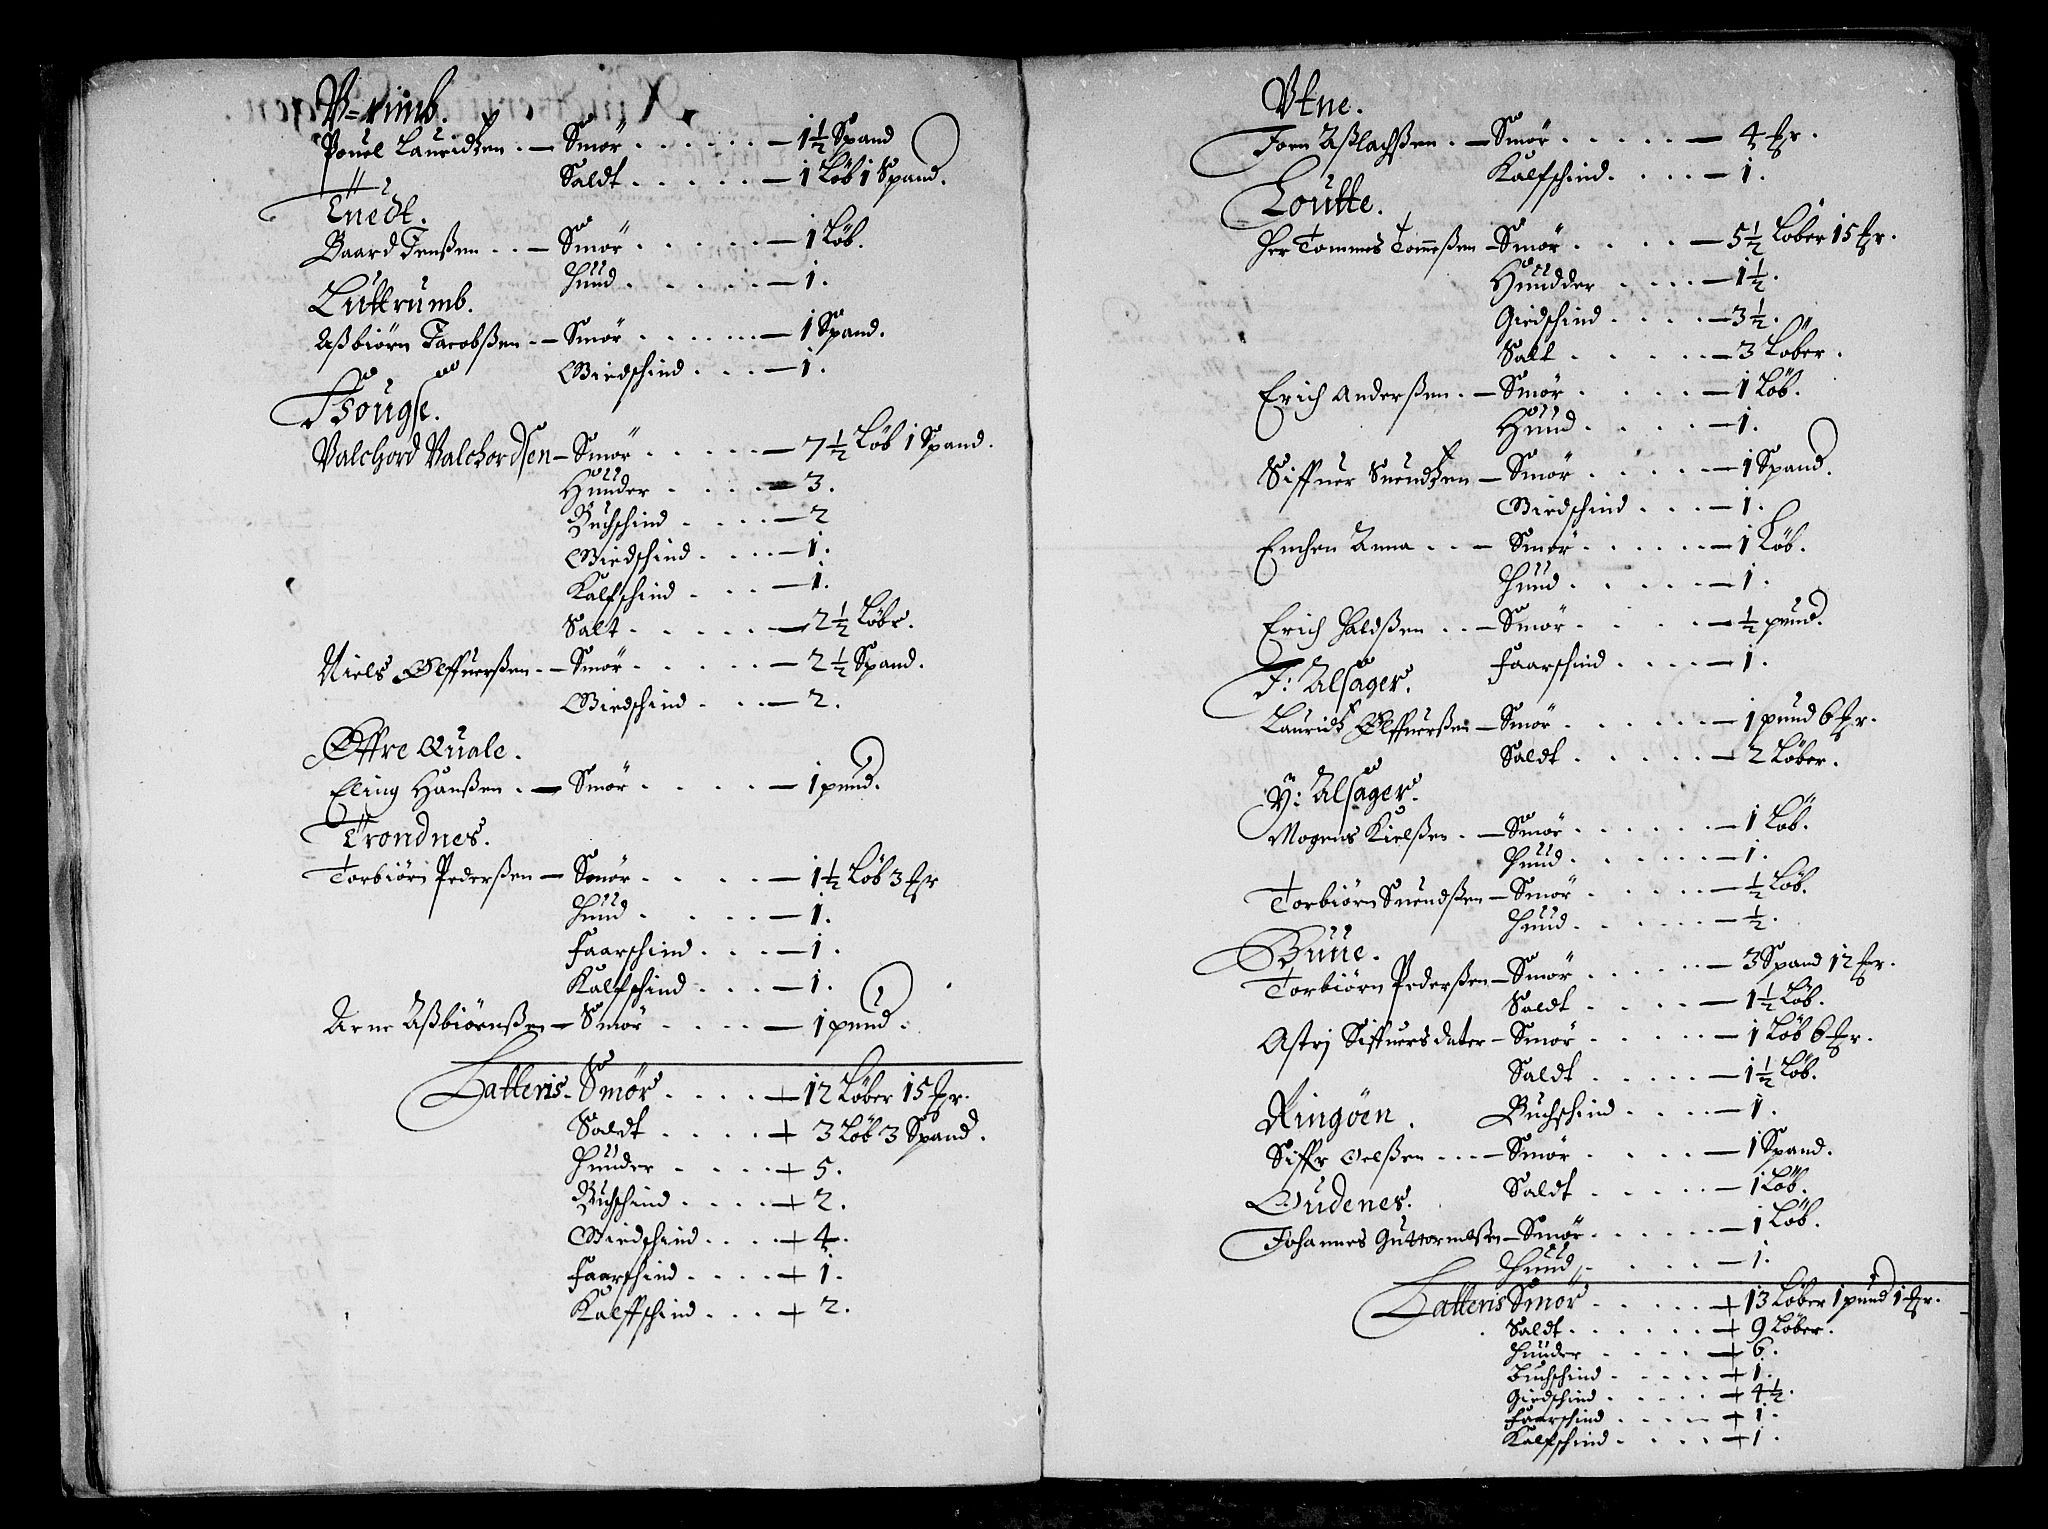 Pouel Lauridtzen . — Smör . . . . . . — 1½ Spand
Saldt . . . . . — 1 Löb 1 Spand.
Tuedt.
Baard Jenßen . . — Smör . . . . . — 1 Löb.
Huud . . . . . — 1.
Luttrumb.
Aßbiörn Jacobßen . — Smör . . . . . . — 1 Spand.
Giedschind . . . — 1.
Valchord Valchordsen — Smör . . . . . — 7½ Löb 1 Spand.
Huuder . . . . — 3.
Buchschind . . . . — 2
Giedschind . . . . — 1.
Kalfschind . . . — 1.
Salt . . . . . — 2½ Löbr.
Niels Olffuerßen . — Smör . . . . . — 2½ Spand.
Giedschind . . . — 2.
Öffre Quale.
Eling Hanßen . — Smör . . . . . — 1 pund.
Trondnes.
Torbiörn Pederßen — Smör . . . . — 1½ Löb 3 Mr
Huud . . . . . — 1.
Faarschind . . . — 1.
Kalfschind . . . — 1.
Arne Aßbiörnßen — Smör . . . . — 1 pund.
Latteris - Smör . . . . + 12 Löber 15 Mr.
Saldt . . . . + 3 Löb 3 Spand.
Huuder . . . . + 5.
Buchschind . . . . + 2.
Giedschind . . . . + 4.
Faarschind . . . . + 1.
Kalffschind . . . + 2.
Vtne.
Joen Aßlachßen . — Smör . . . . . — 4 Mr.
Kalfschind . . . . — 1.
Loutte.
Her Tommes Tomeßen — Smör . . . . — 5½ Löber 15 Mr.
Huudder . . . . — 1½.
Giedschind . . . . — 3½.
Salt . . . . . — 3 Löber.
Erich Anderßen . — Smör . . . . — 1 Löb.
Huud . . . . . — 1.
Siffuer Suendtzen — Smör . . . . — 1 Spand.
Giedschind . . . — 1.
Enchen Anna . . . — Smör . . . . . — 1 Löb.
Huud . . . . . — 1.
Erich Haldßen . . — Smör . . . . — ½ pund.
Faarschind . . . . — 1.
J: Alsager.
Lauridtz Olffuerßen — Smör . . . . . — 1 pund 6 Mr.
Saldt . . . . . — 2 Löber.
Y: Alsager.
Mogens Kielßen . . — Smör . . . . . . — 1 Löb.
Huud . . . . . . — 1.
Torbiörn Suendßen — Smör . . . . . — ½ Löb.
Huud . . . . . — ½.
Buue.
Torbiörn Pederßen — Smör . . . . . — 3 Spand 12 Mr.
Saldt . . . . . — 1½ Löb.
Astrj Siffuersdater — Smör . . . . . — 1 Löb 6 Mr.
Saldt . . . . . — 1½ Löb.
Ringöen. Buchschind . . . . — 1.
Siffr Oelßen . . . — Smör . . . . — 1 Spand.
Saldt . . . . . — 1 Löb.
Oudenes.
Johannes Guttormßen — Smör . . . . . — 1 Löb.
Huud . . . . . — 1.
Latteris Smör . . . . . + 13 Löber 1 pund 1 Mr.
Saldt . . . . . . + 9 Löber.
Huuder . . . . . + 6.
Buchschind . . . . . + 1.
Giedschind . . . . . + 4½.
Faarschind . . . . . + 1.
Kalfschind . . . . . + 1.